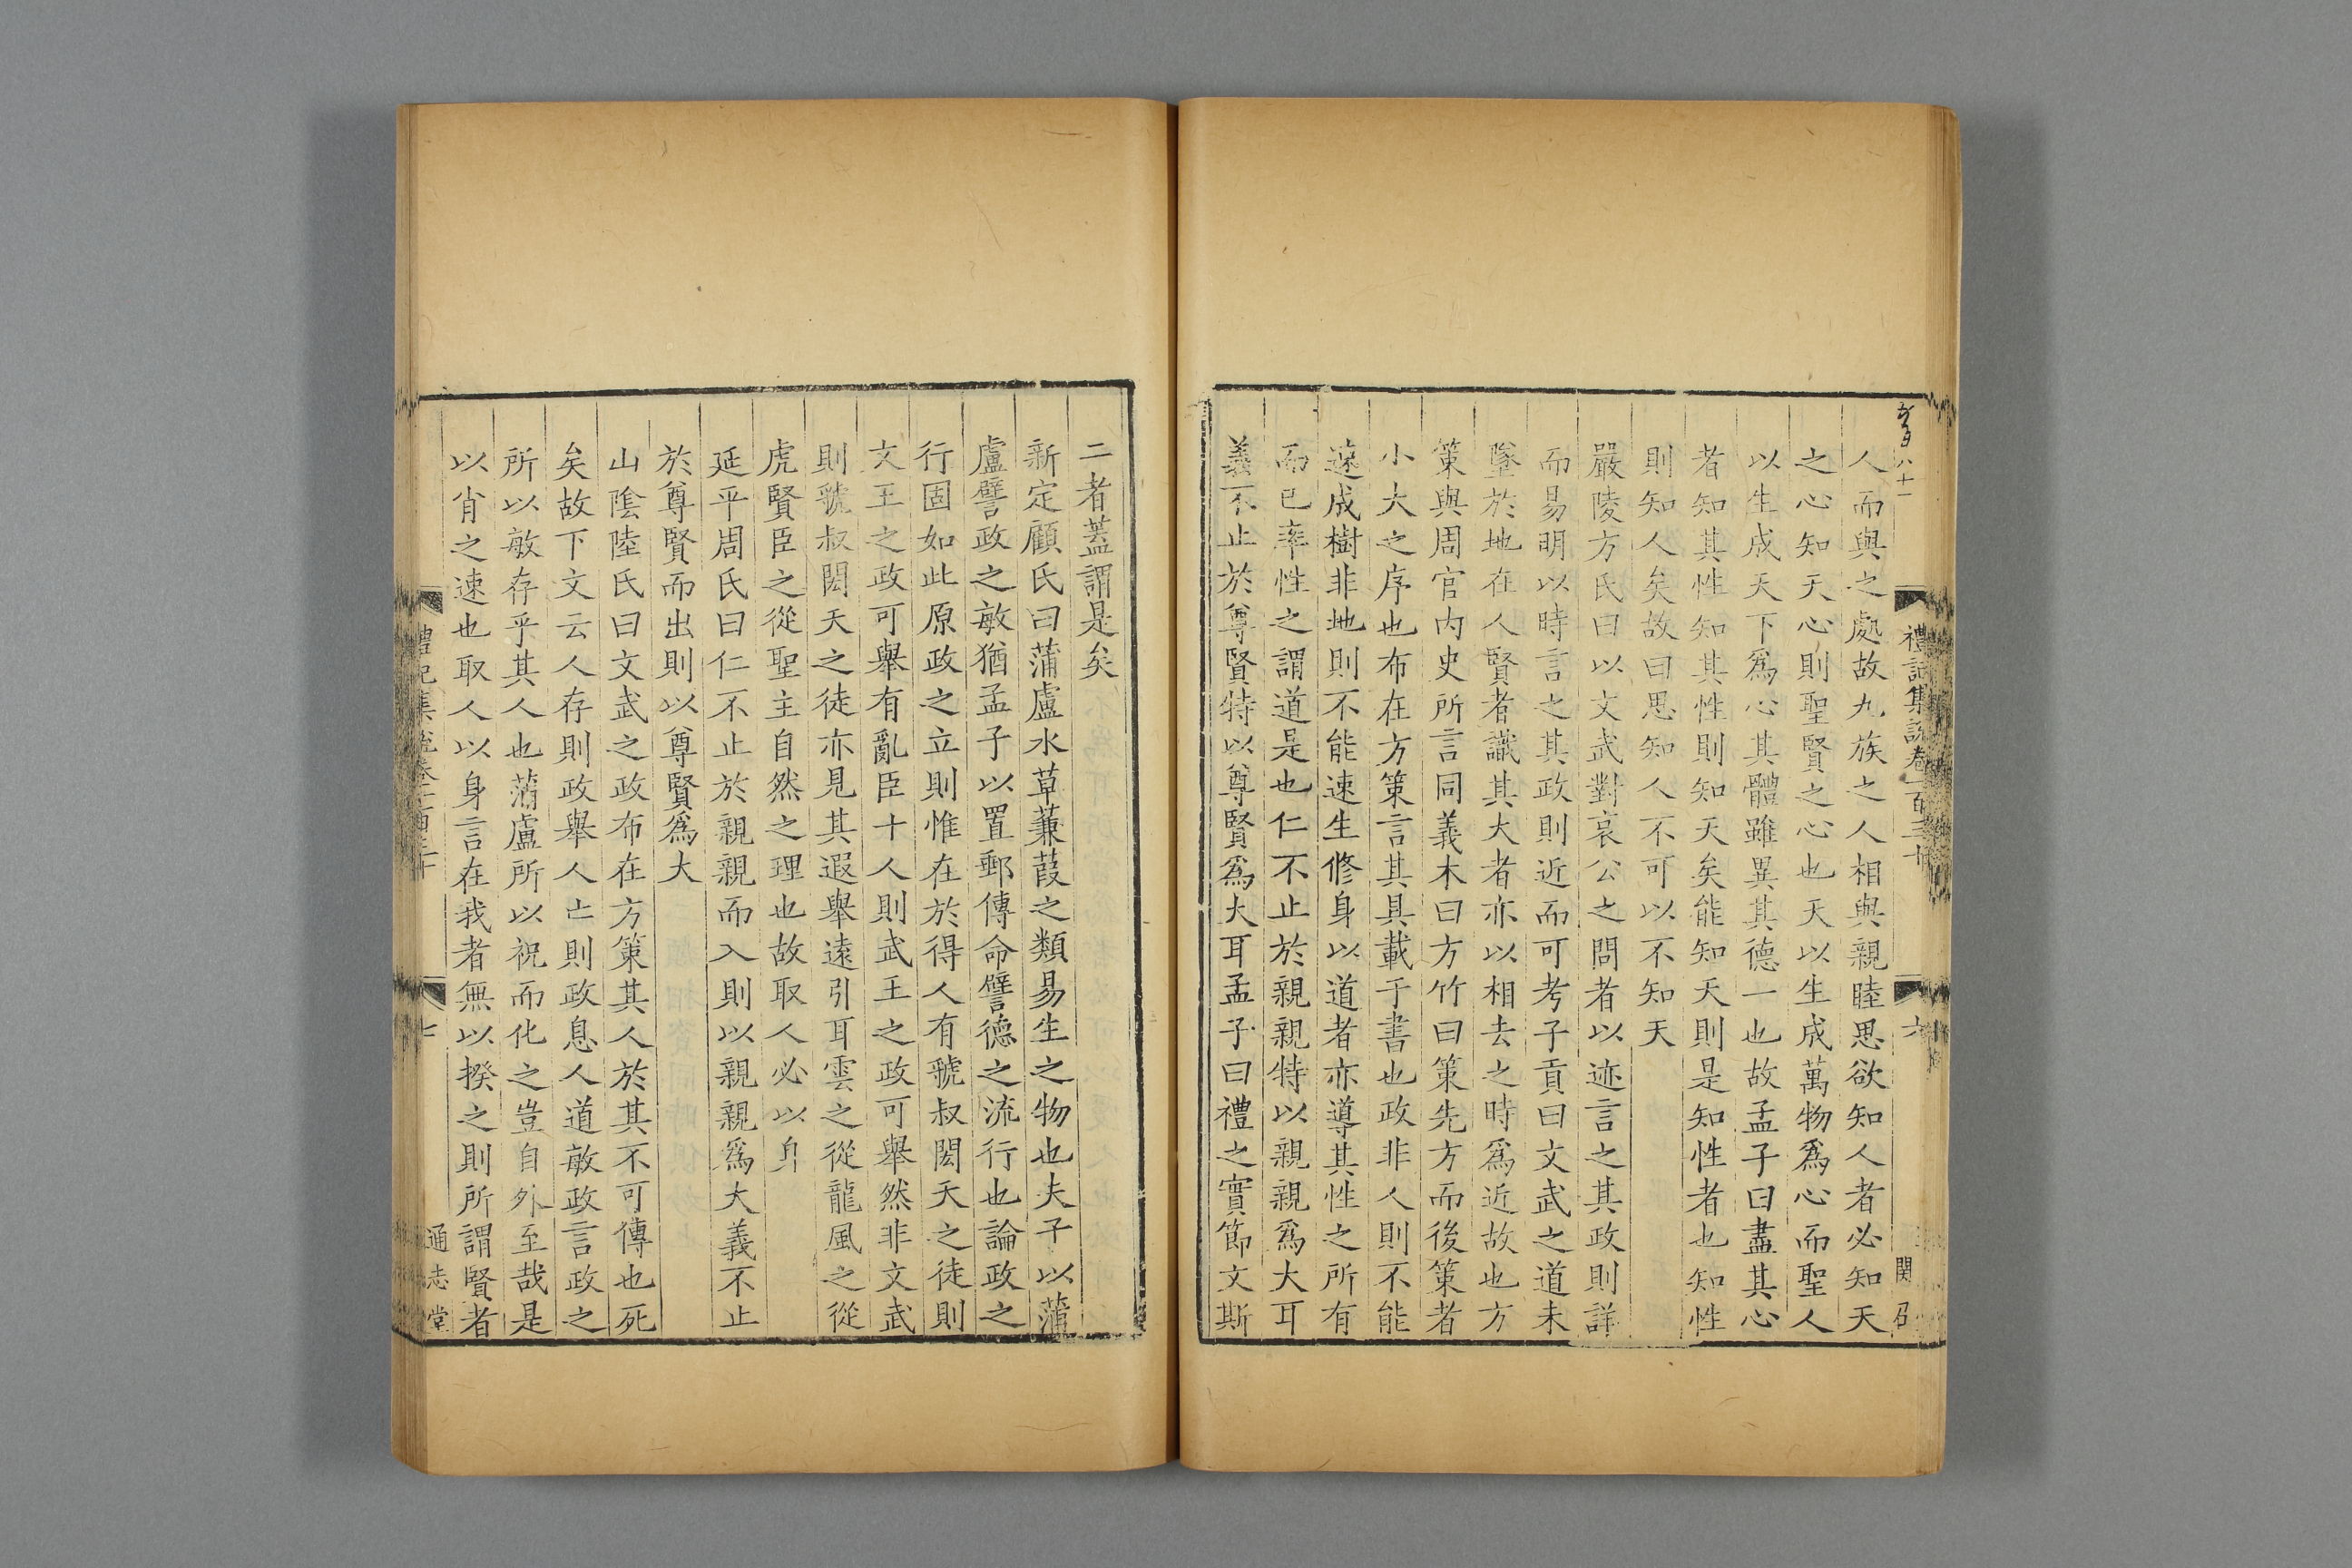 禮記集說卷一百三十
六
人而與之處故九族之人相與親睦思欲知人者必知天
之心知天心則聖賢之心也天以生成萬物爲心而聖人
以生成天下爲心其體雖異其德一也故孟子曰盡其心
者知其性知其性則知天矣能知天則是知性者也知性
則知人矣故曰思知人不可以不知天
嚴陵方氏曰以文武對哀公之問者以迹言之其政則詳
而易明以時言之其政則近而可考子貢曰文武之道未
墜於地在人賢者識其大者亦以相去之時爲近故也方
策與周官内史所言同義木曰方竹曰策先方而後策者
小大之序也布在方策言其具載于書也政非人則不能
速成樹非地則不能速生修身以道者亦導其性之所有
而已率性之謂道是也仁不止於親親特以親親爲大耳
義不止於尊賢特以尊賢爲大耳孟子曰禮之實節文斯
二者蓋謂是矣
新定顧氏曰蒲盧水草蒹葭之類易生之物也夫子以蒲
盧譬政之敏猶孟子以置郵傳命譬德之流行也論政之
行固如此原政之立則惟在於得人有虢叔閎夭之徒則
文王之政可舉有亂臣十人則武王之政可舉然非文武
則虢叔閎夭之徒亦見其遐舉遠引耳雲之從龍風之從
虎賢臣之從聖主自然之理也故取人必以身
延平周氏曰仁不止於親親而入則以親親爲大義不止
於尊賢而出則以尊賢爲大
山陰陸氏曰文武之政布在方策其人於其不可傳也死
矣故下文云人存則政舉人亡則政息人道敏政言政之
所以敏存乎其人也蒲盧所以祝而化之豈自外至哉是
以肖之速也取人以身言在我者無以揆之則所謂賢者
禮記集說卷一百三十
七
通志堂